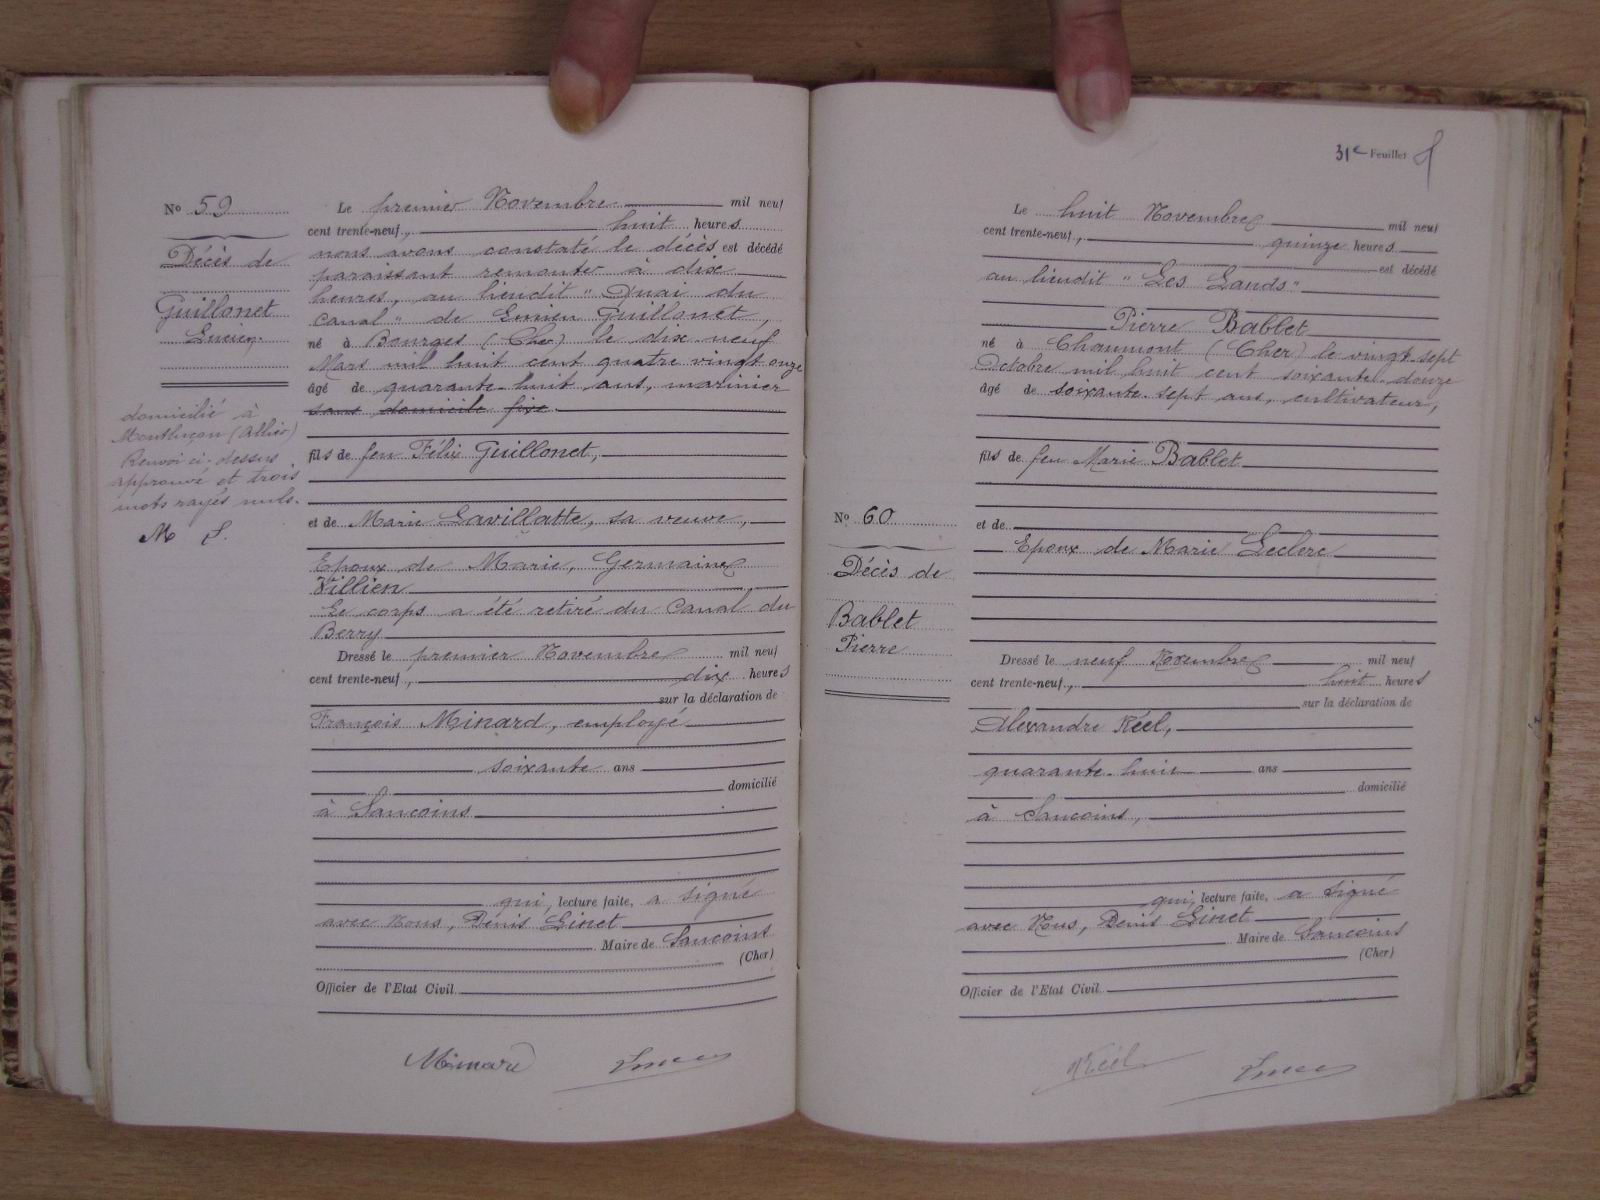 No 59
Décès de
Guillonet
Lucien
domicilié à
Montluçon (Allier)
Renvoi ci-dessus
approuvé et trois
mots rayés nuls.
M
Le premier Novembre mil neuf
cent trente-neuf, huit heures
nous avons constaté le décès est décédé
paraissant remonter à dix
heures, au lieudit "Quai du
Canal" de Lucien Guillonet,
né à Bourges (Cher) le dix neuf
Mars mil huit cent quatre vingt onze
âgé de quarante-huit ans, marinier
sans domicile fixe
fils de feu Félix Guillonet,
et de Marie Lavillatte, sa veuve,
Epoux de Marie, Germaine
Villien
Le corps a été retiré du Canal du
Berry
Dressé le premier Novembre mil neuf
cent trente-neuf, dix heures
sur la déclaration de
François Minard, employé
soixante ans
domicilié
à Sancoins
qui, lecture faite, a signé
avec Nous, Dénis Linet
Maire de Sancoins
(Cher)
Officier de l'Etat Civil
Minard
31e Feuillet
No 60
Décès de
Bablet
Pierre
Le huit Novembre mil neuf
cent trente-neuf, quinze heures
est décédé
au lieudit "Les Gands"
Pierre Bablet
né à Chaumont (Cher) le vingt-sept
Octobre mil huit cent soixante-douze
âgé de soixante-sept ans, cultivateur,
fils de feu Marie Bablet
et de
Epoux de Marie Leclerc
Dressé le neuf Novembre mil neuf
cent trente-neuf, huit heures
sur la déclaration de
Alexandre Réel,
quarante-huit ans
domicilié
à Sancoins,
qui, lecture faite, a signé
avec Nous, Denis Linet
Maire de Sancoins
(Cher)
Officier de l'Etat Civil
Réel